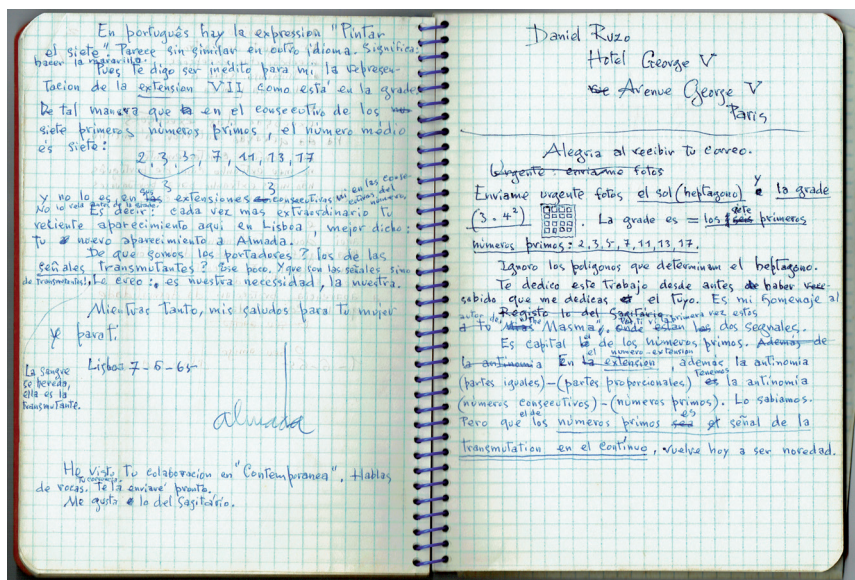 En português hay la expression "Pintar
el siete". Parece sin similar en outro idioma. Significa:
hacer la maravilla.
Pues te digo ser inédito para mi la represen-
tacion de la extension VII como está en la grade.
De tal manera que en el consecutivo de los
siete primeros números primos, el número médio
és siete:
2, 3, 5, 7, 11, 13, 17
3 3
y no lo es en las extensiones consecutivas ni en las conse-
del número.
Es decir: cada vez mas extraordinario tu
reciente aparecimiento aqui en Lisboa, mejor dicho:
tu nuevo aparecimiento a Almada.
De que somos los portadores? los de las
señales transmutantes? Ese poco. Y que son las señales sino
de transmutantes? Lo creo: es nuestra necessidad, la nuestra.
Mientras tanto, mis saludos para tu mujer
y para ti
Lisboa 7-6-65
La sangre
se hereda,
ella es la
transmutante.
almada
He visto tu colaboracion en "Contemporanea". Hablas
de rocas. Te la enviaré pronto.
Me gusta lo del Sagitário.
Daniel Ruzo
Hotel George V
Avenue George V
Paris
Alegria al recibir tu correo.
Urgente: enviame fotos
Enviame urgente fotos el sol (heptagono) y la grade
(3 · 4²) . La grade es = los siete primeros
números primos: 2, 3, 5, 7, 11, 13, 17.
Ignoro los poligonos que determinam el heptagono.
Te dedico este trabajo desde antes de haber
sabido que me dedicas el tuyo. Es mi homenaje al
autor de
Registo lo del Sagitário. vez estos
a tu "Masma", onde estan las dos segnales.
Es capital el de los números primos. Además de
la antinomia En la extension, además la antinomia
el número-extension
(partes iguales)–(partes proporcionales) tenemos la antinomia
(números consecutivos)–(números primos). Lo sabiamos.
Pero que los números primos es señal de la
transmutation en el contínuo, vuelve hoy a ser novedad.